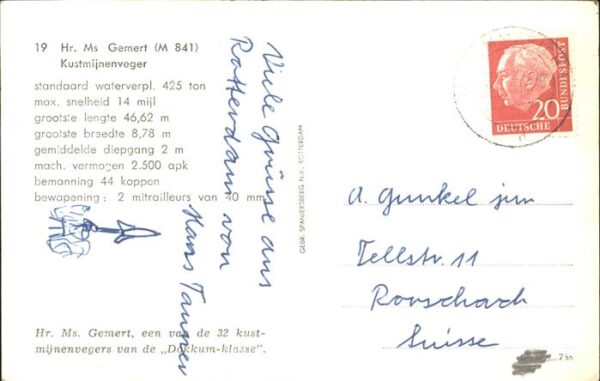 19 Hr. Ms Gemert (M 841)
Kustmijnenveger
standaard waterverpl. 425 ton
max. snelheid 14 mijl
grootste lengte 46,62 m
grootste breedte 8,78 m
gemiddelde diepgang 2 m
mach. vermogen 2.500 apk
bemanning 44 koppen
bewapening: 2 mitrailleurs van 40 mm
Hr. Ms. Gemert, een van de 32 kust-
mijnenvegers van de „Dokkum-klasse".
Viele Grüsse aus
Rotterdam von
Hans Tanner
GEBR. SPANJERSBERG N.V., ROTTERDAM
20
DEUTSCHE
BUNDESPOST
A. Gunkel jun
Tellstr. 11
Rorschach
Suisse